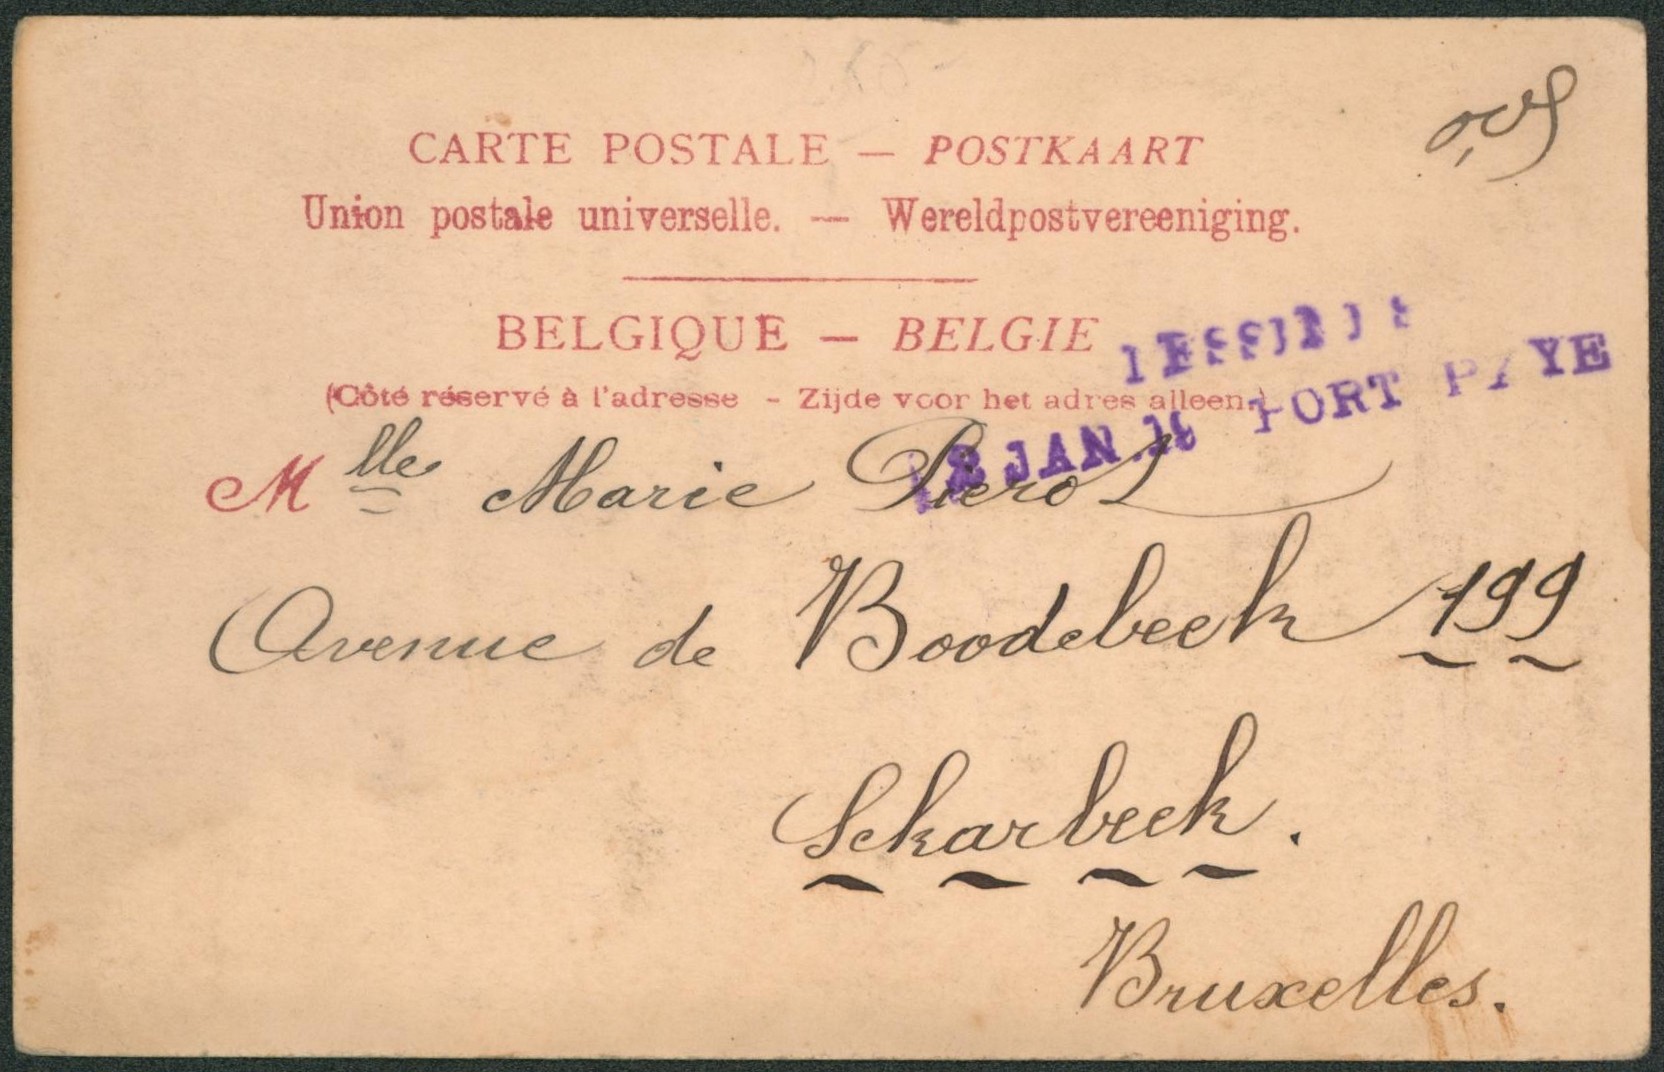 0,05
CARTE POSTALE — POSTKAART
Union postale universelle. — Wereldpostvereeniging.
BELGIQUE — BELGIE
(Côté réservé à l'adresse - Zijde voor het adres alleen.)
PORT PAYE
JAN.
Mlle Marie Pierot
Avenue de Boodebeek 199
Sckarbeek.
Bruxelles.